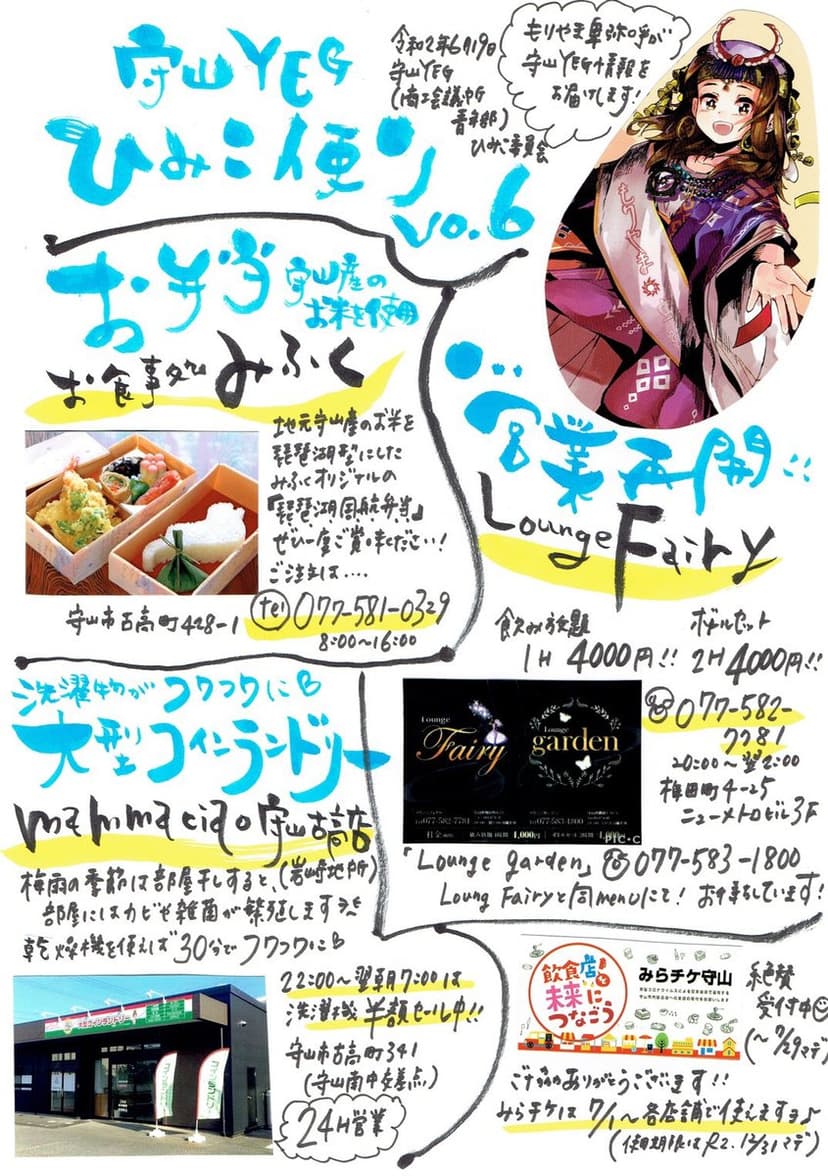 守山YEG
ひみこ便り
vo.6
令和2年6月19日
守山YEG
(商工会議所
青年部)
ひみこ委員会
もりやま卑弥呼が
守山YEG情報を
お届けします!
もりやま
お弁当
守山産の
お米を使用
お食事処 みふく
地元守山産のお米を
琵琶湖型にした
みふくオリジナルの
『琵琶湖周航弁当』
ぜひ一度ご賞味ください!
ご注文は....
守山市古高町428-1
tel 077-581-0329
8:00〜16:00
営業再開!!
Lounge Fairy
飲み放題
1H 4000円!!
ボトルセット
2H 4000円!!
077-582-
7781
20:00〜翌2:00
梅田町4-25
ニューメトロビル3F
Lounge
Fairy
Lounge
garden
TEL 077-582-7781
TEL 077-583-1800
4,000円
PIC・C
「Lounge garden」 077-583-1800
Loung Fairyと同menuにて! お待ちしています!
洗濯物がフワフワに
大型コインランドリー
mammaciao守山古高店
(岩崎地所)
梅雨の季節は部屋干しすると、
部屋にはカビや雑菌が繁殖します
乾燥機を使えば30分でフワフワに
22:00〜翌朝7:00は
洗濯機半額セール中!!
守山市古高町341
(守山南中交差点)
24H営業
コインランドリー
飲食店と
未来に
つなごう
みらチケ守山
絶賛
受付中
(〜7/29マデ)
ご協力ありがとうございます!!
みらチケは7/1〜各店舗で使えますよ♪
(使用期限はR2.12/31マデ)